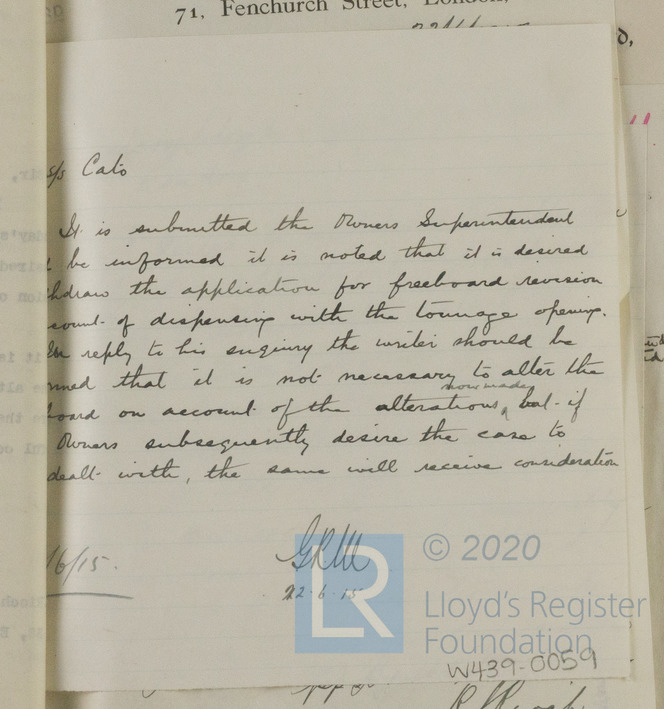 71, Fenchurch Street, London,
s/s Cato
It is submitted the Owners Superintendent
be informed it is noted that it is desired
hdraw the application for freeboard revision
count of dispensing with the tonnage opening.
In reply to his enquiry the writer should be
rmed that it is not necessary to alter the
board on account of the alterations now made, but if
Owners subsequently desire the case to
dealt with, the same will receive consideration
16/15.
22.6.15
LR
© 2020
Lloyd's Register
Foundation
W439-0059